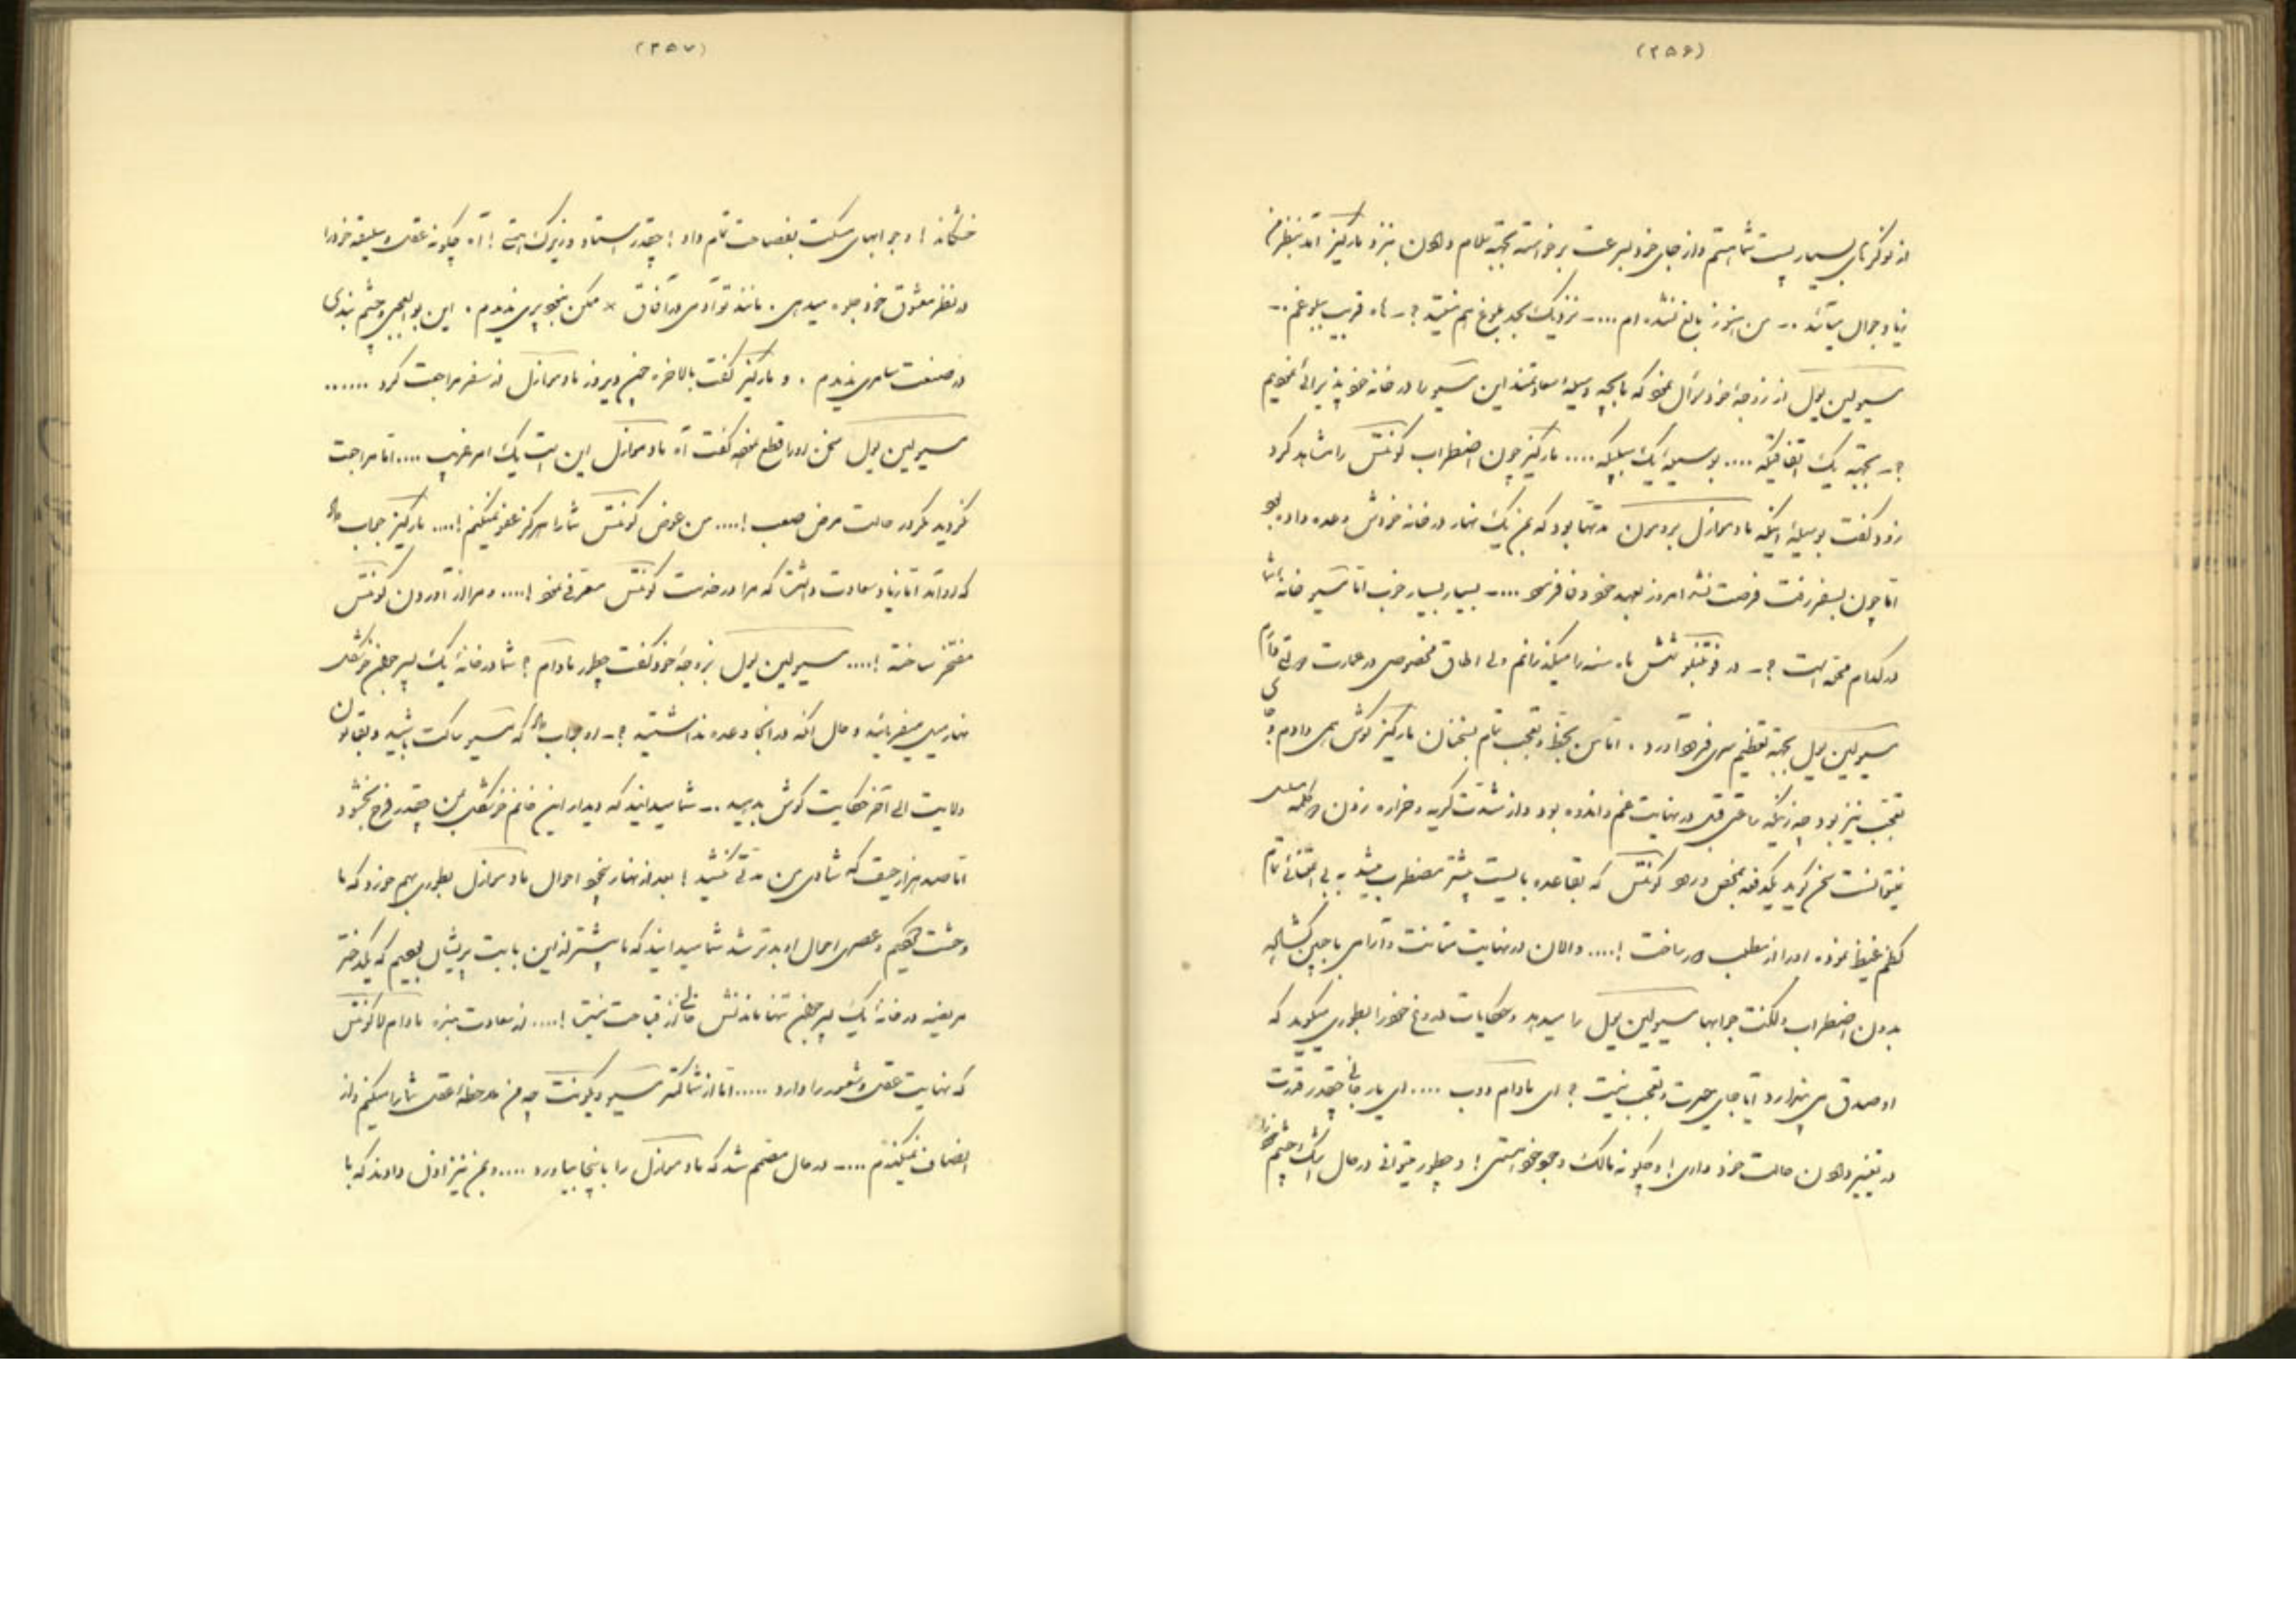 (۲۵۶)
از نوکرهای بسیار پست شما هستم و از جای خود بسرعت برخواسته بجهة سلام دادن بنزد مارکیز آمد بنظر من
زیاد جوال میآئید .- من هنوز بالغ نشده ام ....- نزدیک بحد بلوغ هم نیستید ؟ - ها قریب ببلوغم .-
مسیو لین یول از زوجهٔ خود سؤال نمود که بچه وسیله سعادتمند این مسیو را در خانه خود پذیرائی نمودیم
؟ - بجهة یک اتفاقیکه .... بوسیلهٔ یک بلیکه .... مارکیز چون اضطراب کونتس را مشاهده کرد
زود گفت بوسیلهٔ اینکه مادموازل بردمون مدتها بود که بمن یک نهار در خانه خودش وعده داده بود
اما چون بسفر رفت فرصت نشد امروز بعهد خود وفا فرمود ....- بسیار بسیار خوب اما مسیو خانه شما
در کدام محله است ؟ - در شش ماه سنه را میگذرانم ولی اطاق مخصوصی در عمارت دارم
مسیو لین یول بجهة تعظیم سری فرود آورد . اما من بحظ و تعجب تمام بسخنان مارکیز گوش همی دادم و
تعجب نیز بود چه زنیکه ساعتی قبل در نهایت غم و اندوه بود و از شدت گریه و
نمیتوانست سخن گوید یکدفعه بمحض ورود کونتس که بقاعده بایست بیشتر مضطرب میشد به بی اعتنائی تمام
کظم غیظ نموده او را از مطلب دور ساخت !.... و الان در نهایت متانت و آرامی با جبین گشاده
بدون اضطراب و لکنت جوابها مسیو لین یول را میدهد و حکایات دروغ خود را بطوری میگوید که
او صدق می پندارد آیا جای حیرت و تعجب نیست ؟ ای مادام دوب .... ای یار جانی چقدر قدرت
در تغییر دادن حالت خود داری ! و چگونه مالک وجود خود هستی ! و چطور میتوانی در حال اشک چشم خود را
(۲۵۷)
خشکاند ! و جوابهای مسکت بفصاحت تمام داد ! چقدر استاد و زیرک است ! آه چگونه عقل و سلیقه خود را
در نظر معشوق خود جلوه میدهی . مانند تو آدمی در آفاق × ممکن نبود پری ندیدم . این بوالعجبی و چشم بندی
در صنعت سامری ندیدم . و مارکیز گفت بالاخره همین دیروز مادموازل از سفر مراجعت کرد ......
مسیو لین یول سخن او را قطع نموده گفت آه مادموازل این است یک امر غریب .... اما مراجعت
نکردید مگر در حالت مرض صعب !.... من عوض کونتس شما را هرگز عفو نمیکنم !.... مارکیز جواب داد
که اوراند اما زیاد سعادت داشت که مرا در خدمت کونتس معرفی نمود !.... و مرا از آوردن کونتس
مفتخر ساخته !.... مسیو لین یول بزوجهٔ خود گفت چطور مادام ؟ شما در خانهٔ یک پسر جوان خوشگل
نهار میل میفرمائید و حال آنکه در آنجا وعده نداشتید ؟ - او جواب داد که مسیو ساکت باشید و بقانون
ولایت الی آخر حکایت گوش بدهید .- شما میدانید که دیدار این خانم خوشگل بمن چقدر فرح بخشود
اما صد هزار حیف که شادی من مدتی نکشید ! بعد از نهار بخود احوال مادموازل بطوری بهم خورد که ما
وحشت کردیم و عصری احوال او بدتر شد شما میدانید که ما بیشتر از این بابت پریشان بودیم که یکدختر
مریضه در خانهٔ یک پسر جوان تنها ماندنش خالی از قباحت نیست !.... از سعادت بنده مادام لاکونتس
که نهایت عقل و شعور را دارد ..... اما از شما کمتر مسیو ویکونت چه من ملاحظهٔ عقل شما را میکنم و از
انصاف نمیگذرم ....- در حال مصمم شد که مادموازل را باینجا بیاورد .... و بمن نیز اذن دادند که با